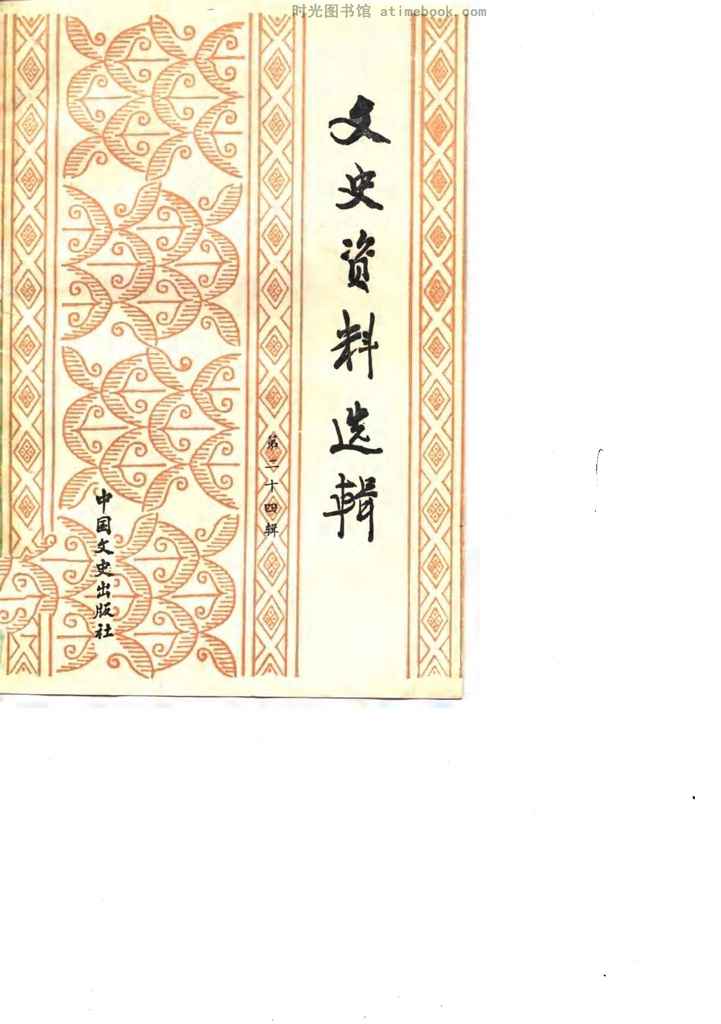 时光图书馆 atimebook.com
文史资料选辑
第二十四辑
中国文史出版社